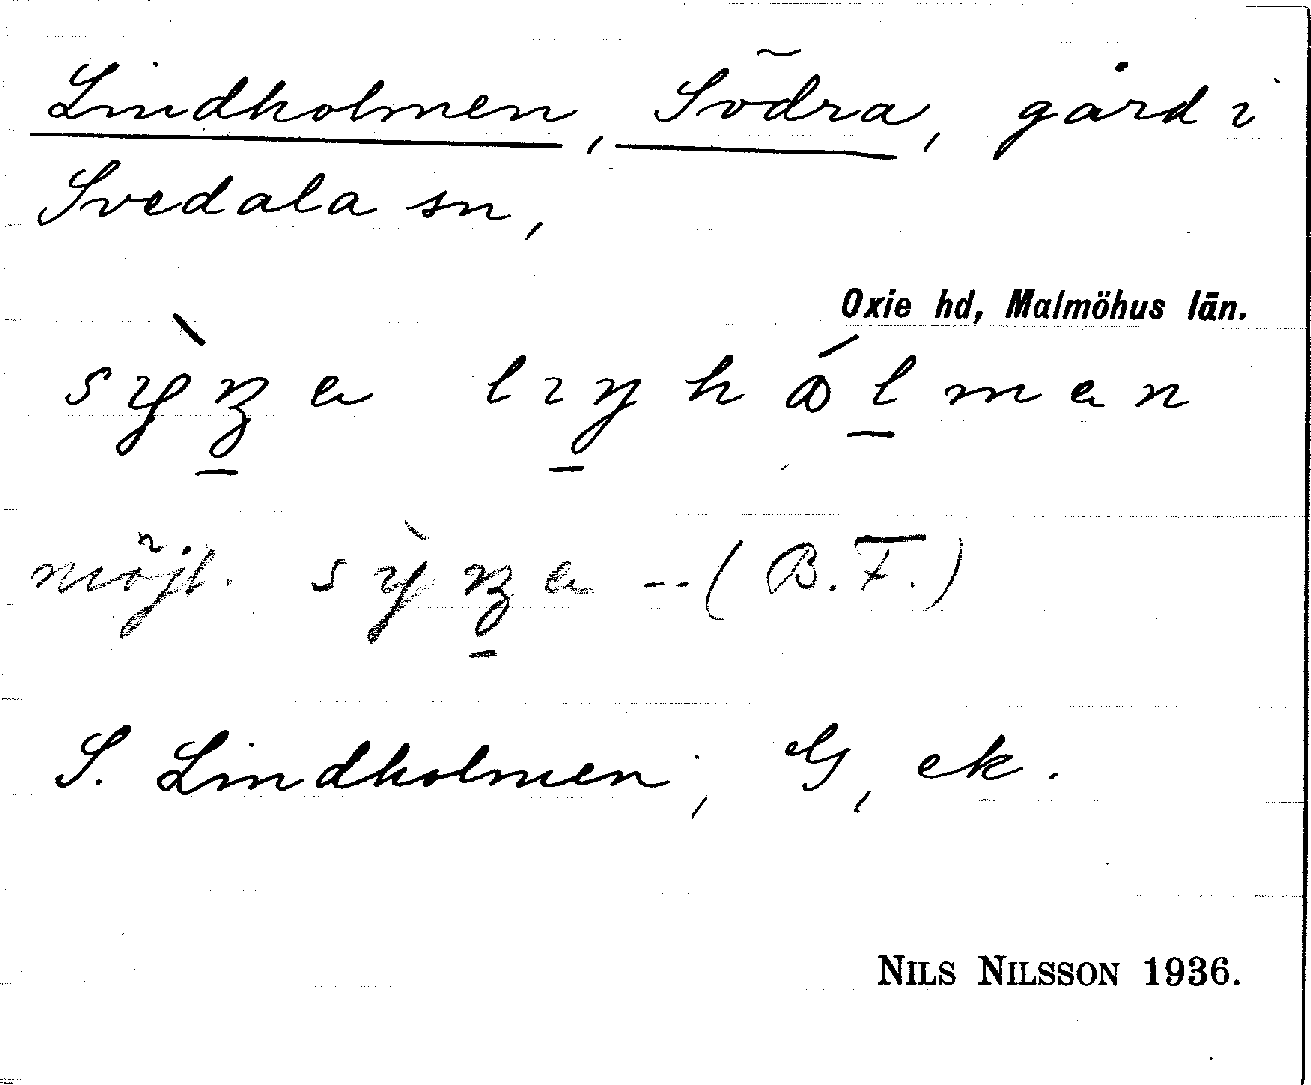 Lindholmen, Södra, gård i
Svedala sn,
Oxie hd, Malmöhus län.
möjl. -- (B.F.)
S. Lindholmen, G, ek.
NILS NILSSON 1936.